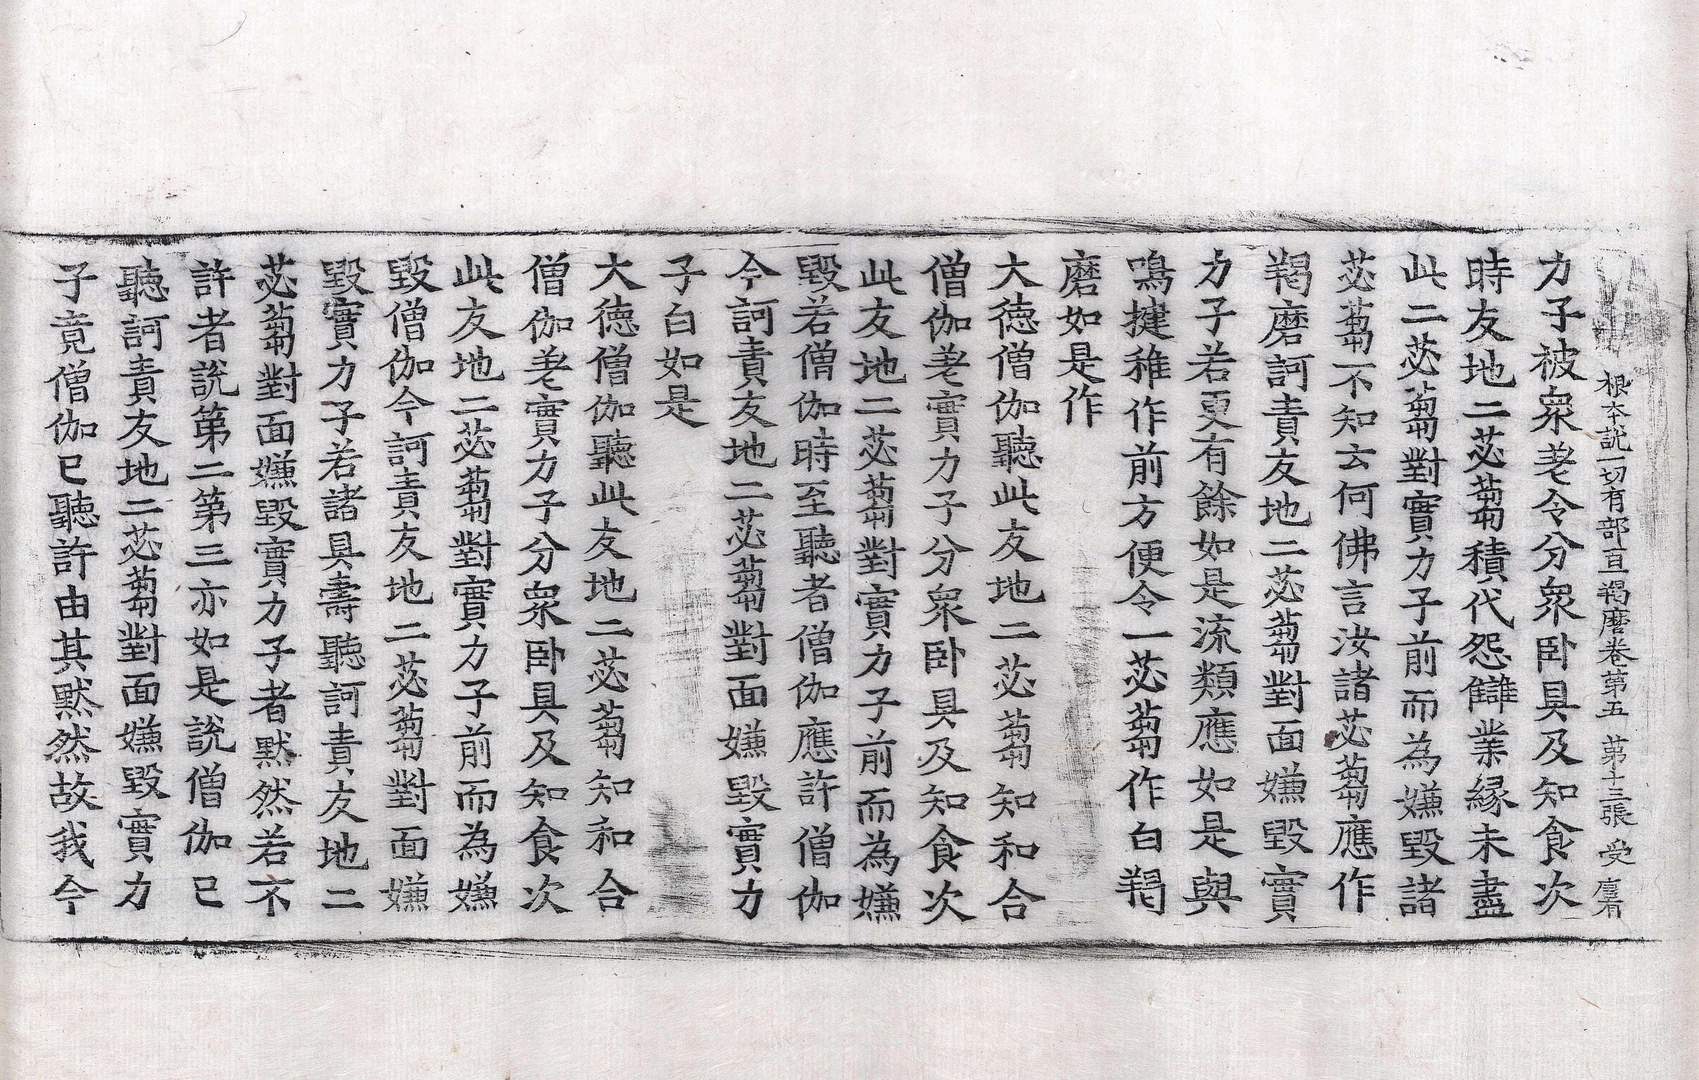 根夲說一切有部百一羯磨卷苐五 苐十三張 受
力子被衆差令分衆卧具及知食次
時友地二苾蒭積代怨讎業緣未盡
此二苾蒭對實力子前而為嫌毀諸
苾蒭不知云何佛言汝諸苾蒭應作
羯磨訶責友地二苾蒭對面嫌毀實
力子若更有餘如是流類應如是與
鳴揵稚作前方便令一苾蒭作白羯
磨如是作
大德僧伽聽此友地二苾蒭知和合
僧伽差實力子分衆卧具及知食次
此友地二苾蒭對實力子前而為嫌
毀若僧伽時至聽者僧伽應許僧伽
今訶責友地二苾蒭對面嫌毀實力
子白如是
大德僧伽聽此友地二苾蒭知和合
僧伽差實力子分衆卧具及知食次
此友地二苾蒭對實力子前而為嫌
毀僧伽今訶責友地二苾蒭對面嫌
毀實力子若諸具壽聽訶責友地二
苾蒭對面嫌毀實力子者默然若不
許者說第二第三亦如是說僧伽已
聽訶責友地二苾蒭對面嫌毀實力
子竟僧伽已聽許由其默然故我今